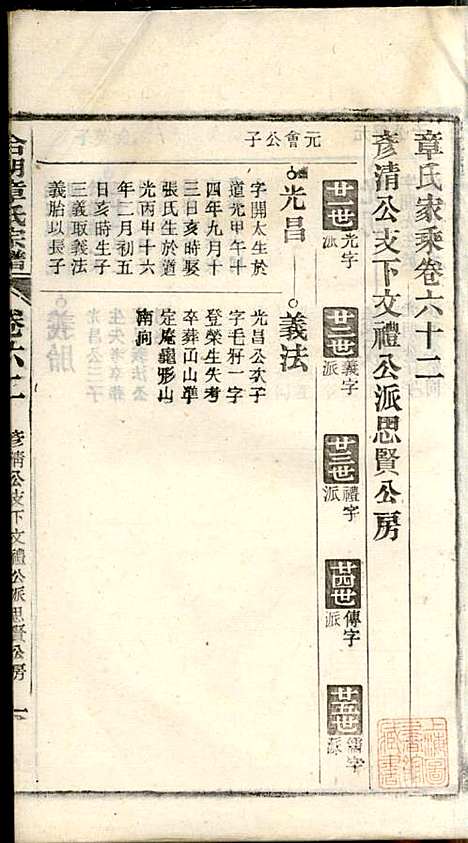 章氏家乘卷六十二
彥清公支下文禮公派思賢公房
廿一世 光字派
廿二世 義字派
廿三世 禮字派
廿四世 傳字派
廿五世 儒字派
元會公子
光昌
義法
字開太生於
道光甲午十
四年九月十
三日亥時娶
張氏生於道
光丙申十六
年二月初五
日亥時生子
三義取義法
義胎以長子
光昌公次子
字毛好一字
登榮生失考
卒葬山山
定庵龜形山
南向
合湖章氏宗譜
卷六二
彥清公支下文禮公派思賢公房
一
上海圖書館藏書